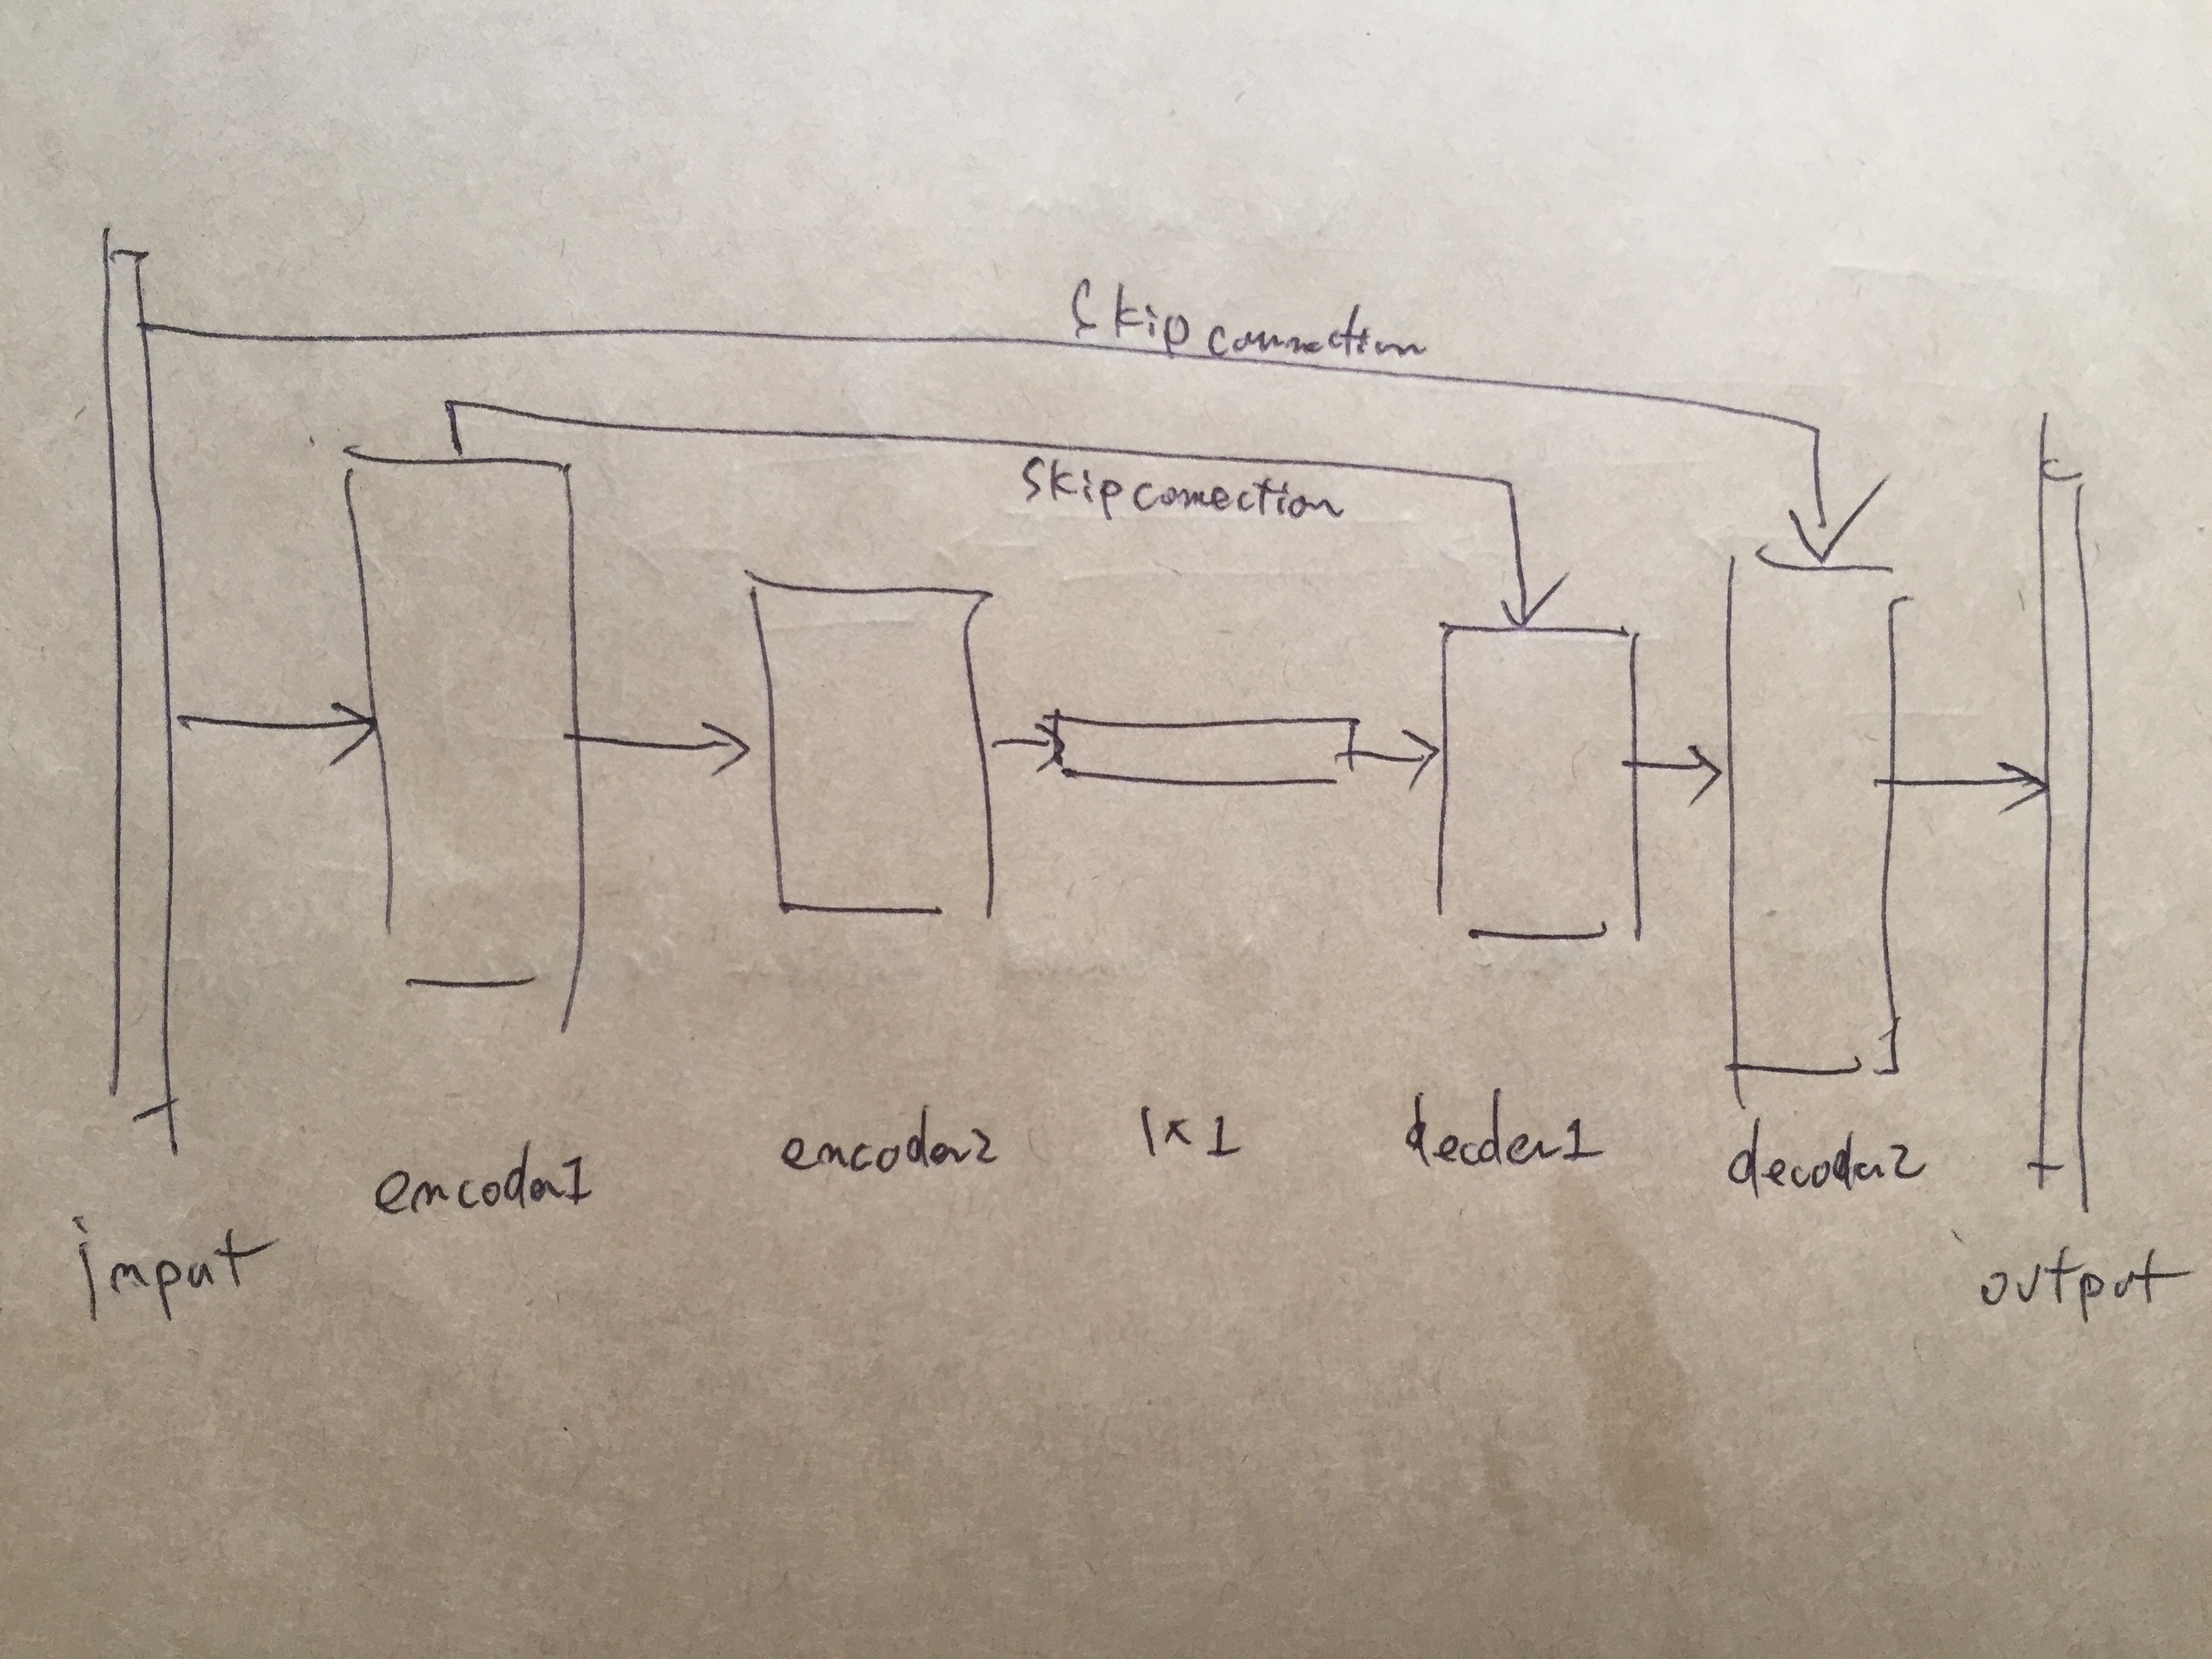 Skip connection
Skip connection
input
encoder1
encoder2
1x1
decder1
decoder2
output